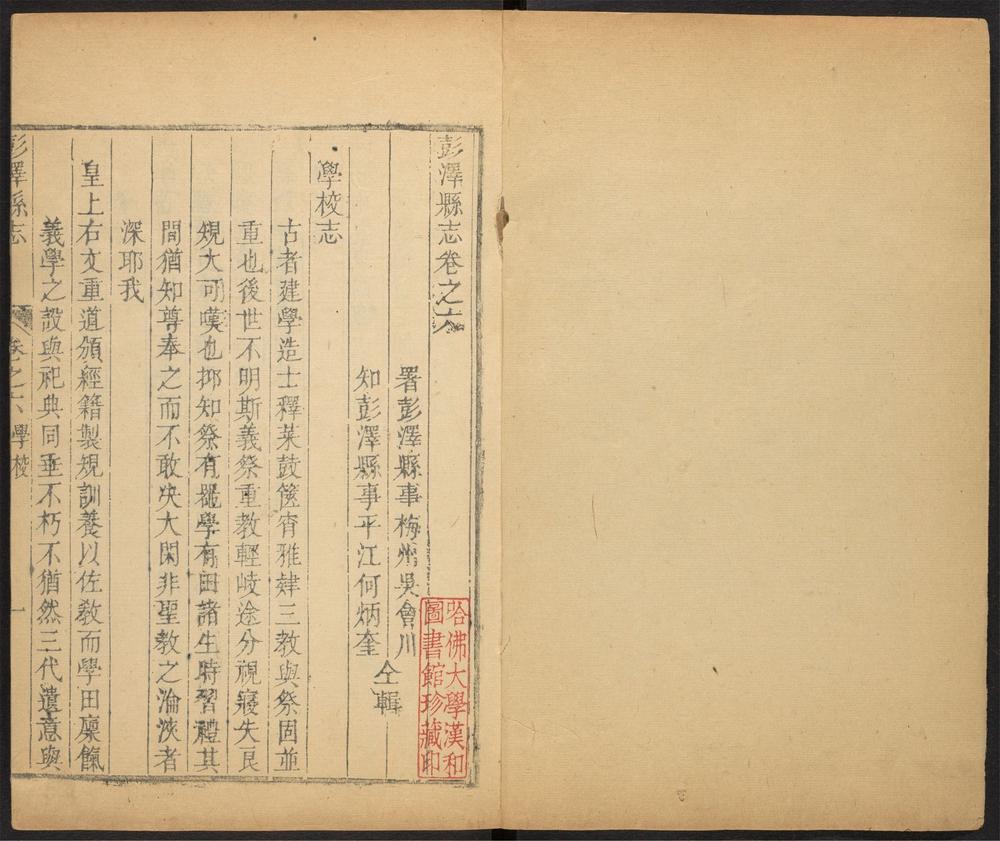 彭澤縣志卷之六
署彭澤縣事梅州吳會川
知彭澤縣事平江何炳奎
仝輯
學校志
古者建學造士釋菜鼓篋宵雅肄三教與祭固並
重也後世不明斯義祭重教輕岐途分視寖失良
規大可嘆也抑知祭有器學有田諸生時習禮其
間猶知尊奉之而不敢决大閑非聖教之淪浹者
深耶我
皇上右文重道頒經籍製規訓養以佐教而學田廩餼
義學之設與祀典同垂不朽不猶然三代遺意與
彭澤縣志
卷之六
學校
一
哈佛大學漢和
圖書館珍藏印